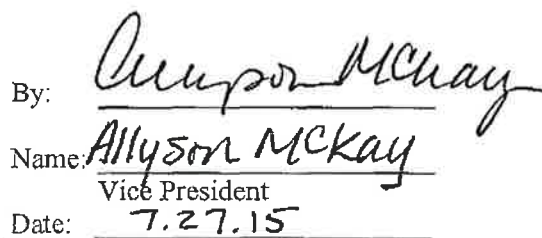 By: Allyson McKay
Name: Allyson McKay
Vice President
Date: 7.27.15